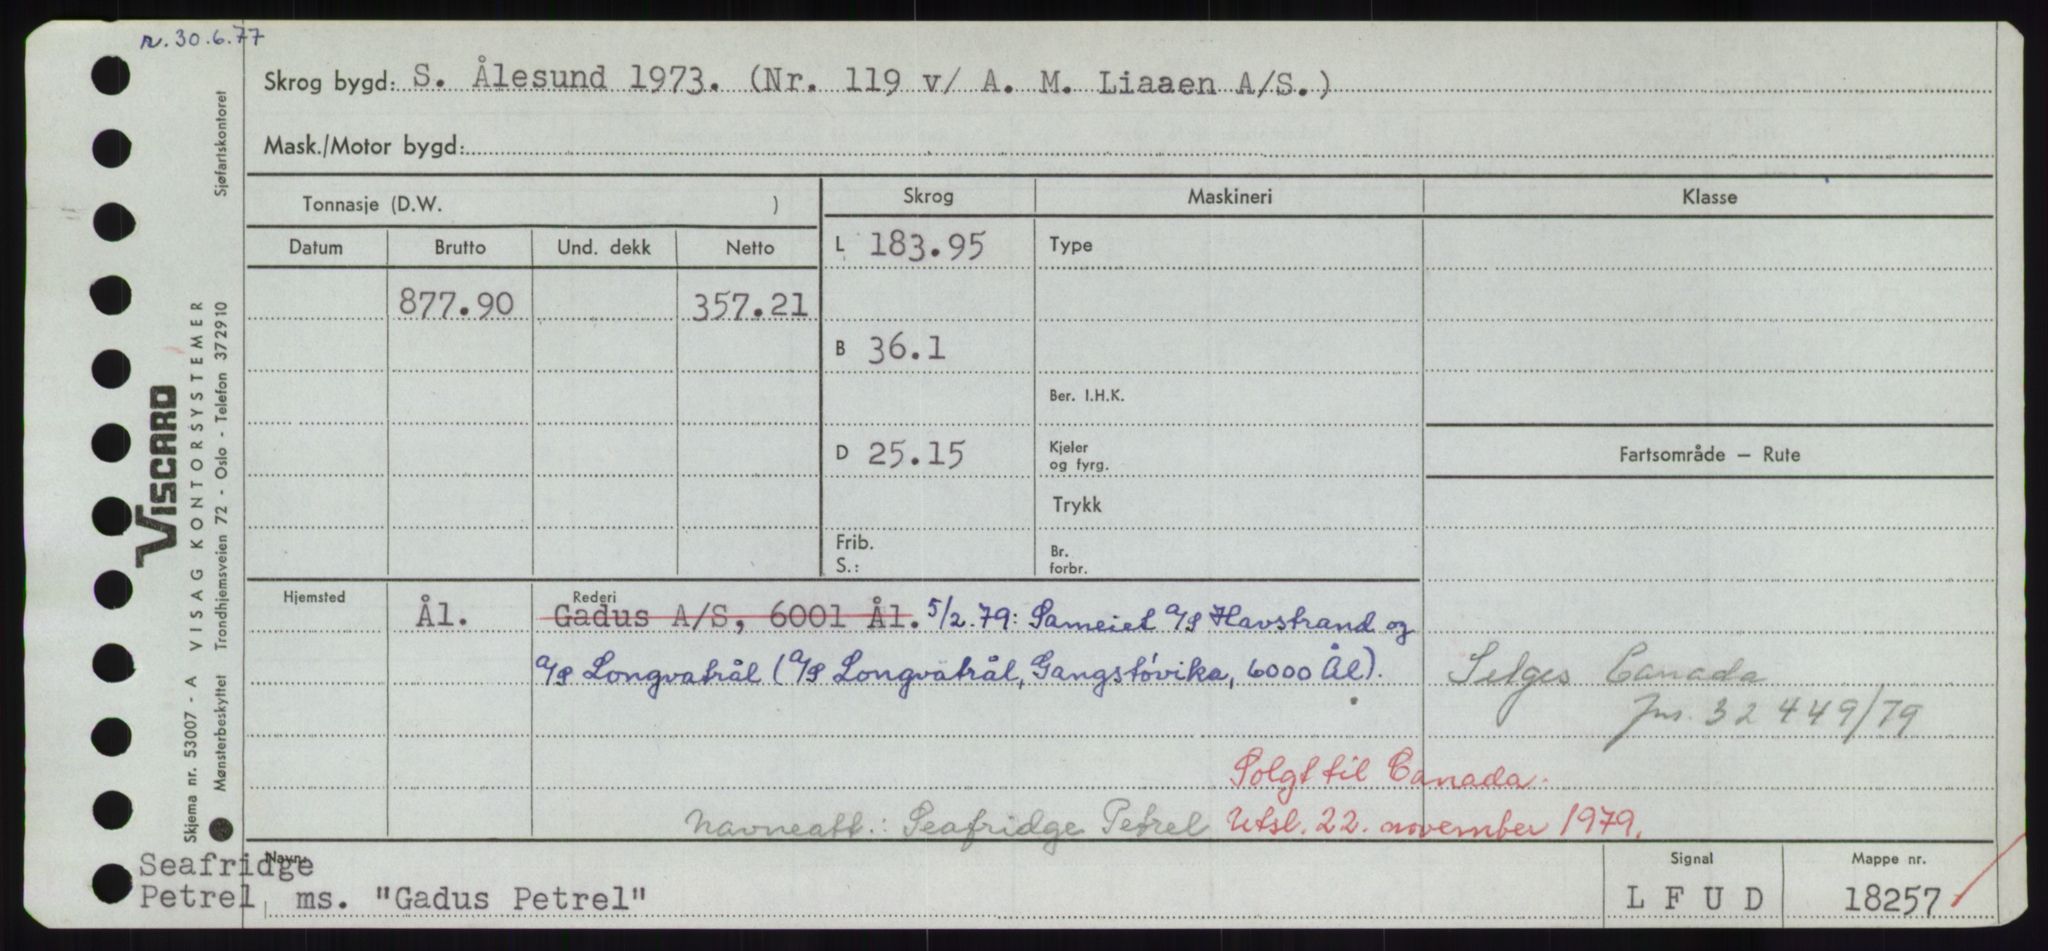 r. 30.6.77
Skrog bygd: S. Ålesund 1973. (Nr. 119 v/ A. M. Liaaen A/S.)
Mask./Motor bygd:
Tonnasje (D.W. )
Skrog
Maskineri
Klasse
Datum Brutto Und. dekk Netto
L 183.95
Type
877.90 357.21
B 36.1
Ber. I.H.K.
D 25.15
Kjeler
og fyrg.
Fartsområde — Rute
Trykk
Frib.
S.:
Br.
forbr.
Hjemsted Ål.
Rederi
Gadus A/S, 6001 Ål. 5/2.79: Sameiet A/S Havstrand og
A/S Longvatrål (A/S Longvatrål, Gangstøvika, 6000 Ål).
Selges Canada
jns. 32449/79
Solgt til Canada.
Navneatt.: Seafridge Petrel Utsl. 22. november 1979.
Navn:
Seafridge
Petrel, ms. "Gadus Petrel"
Signal
L F U D
Mappe nr.
18257
VISCARD
Skjema nr. 53007 - A VISAG KONTORSYSTEMER
Mønsterbeskyttet Trondhjemsveien 72 - Oslo - Telefon 372910 Sjøfartskontoret